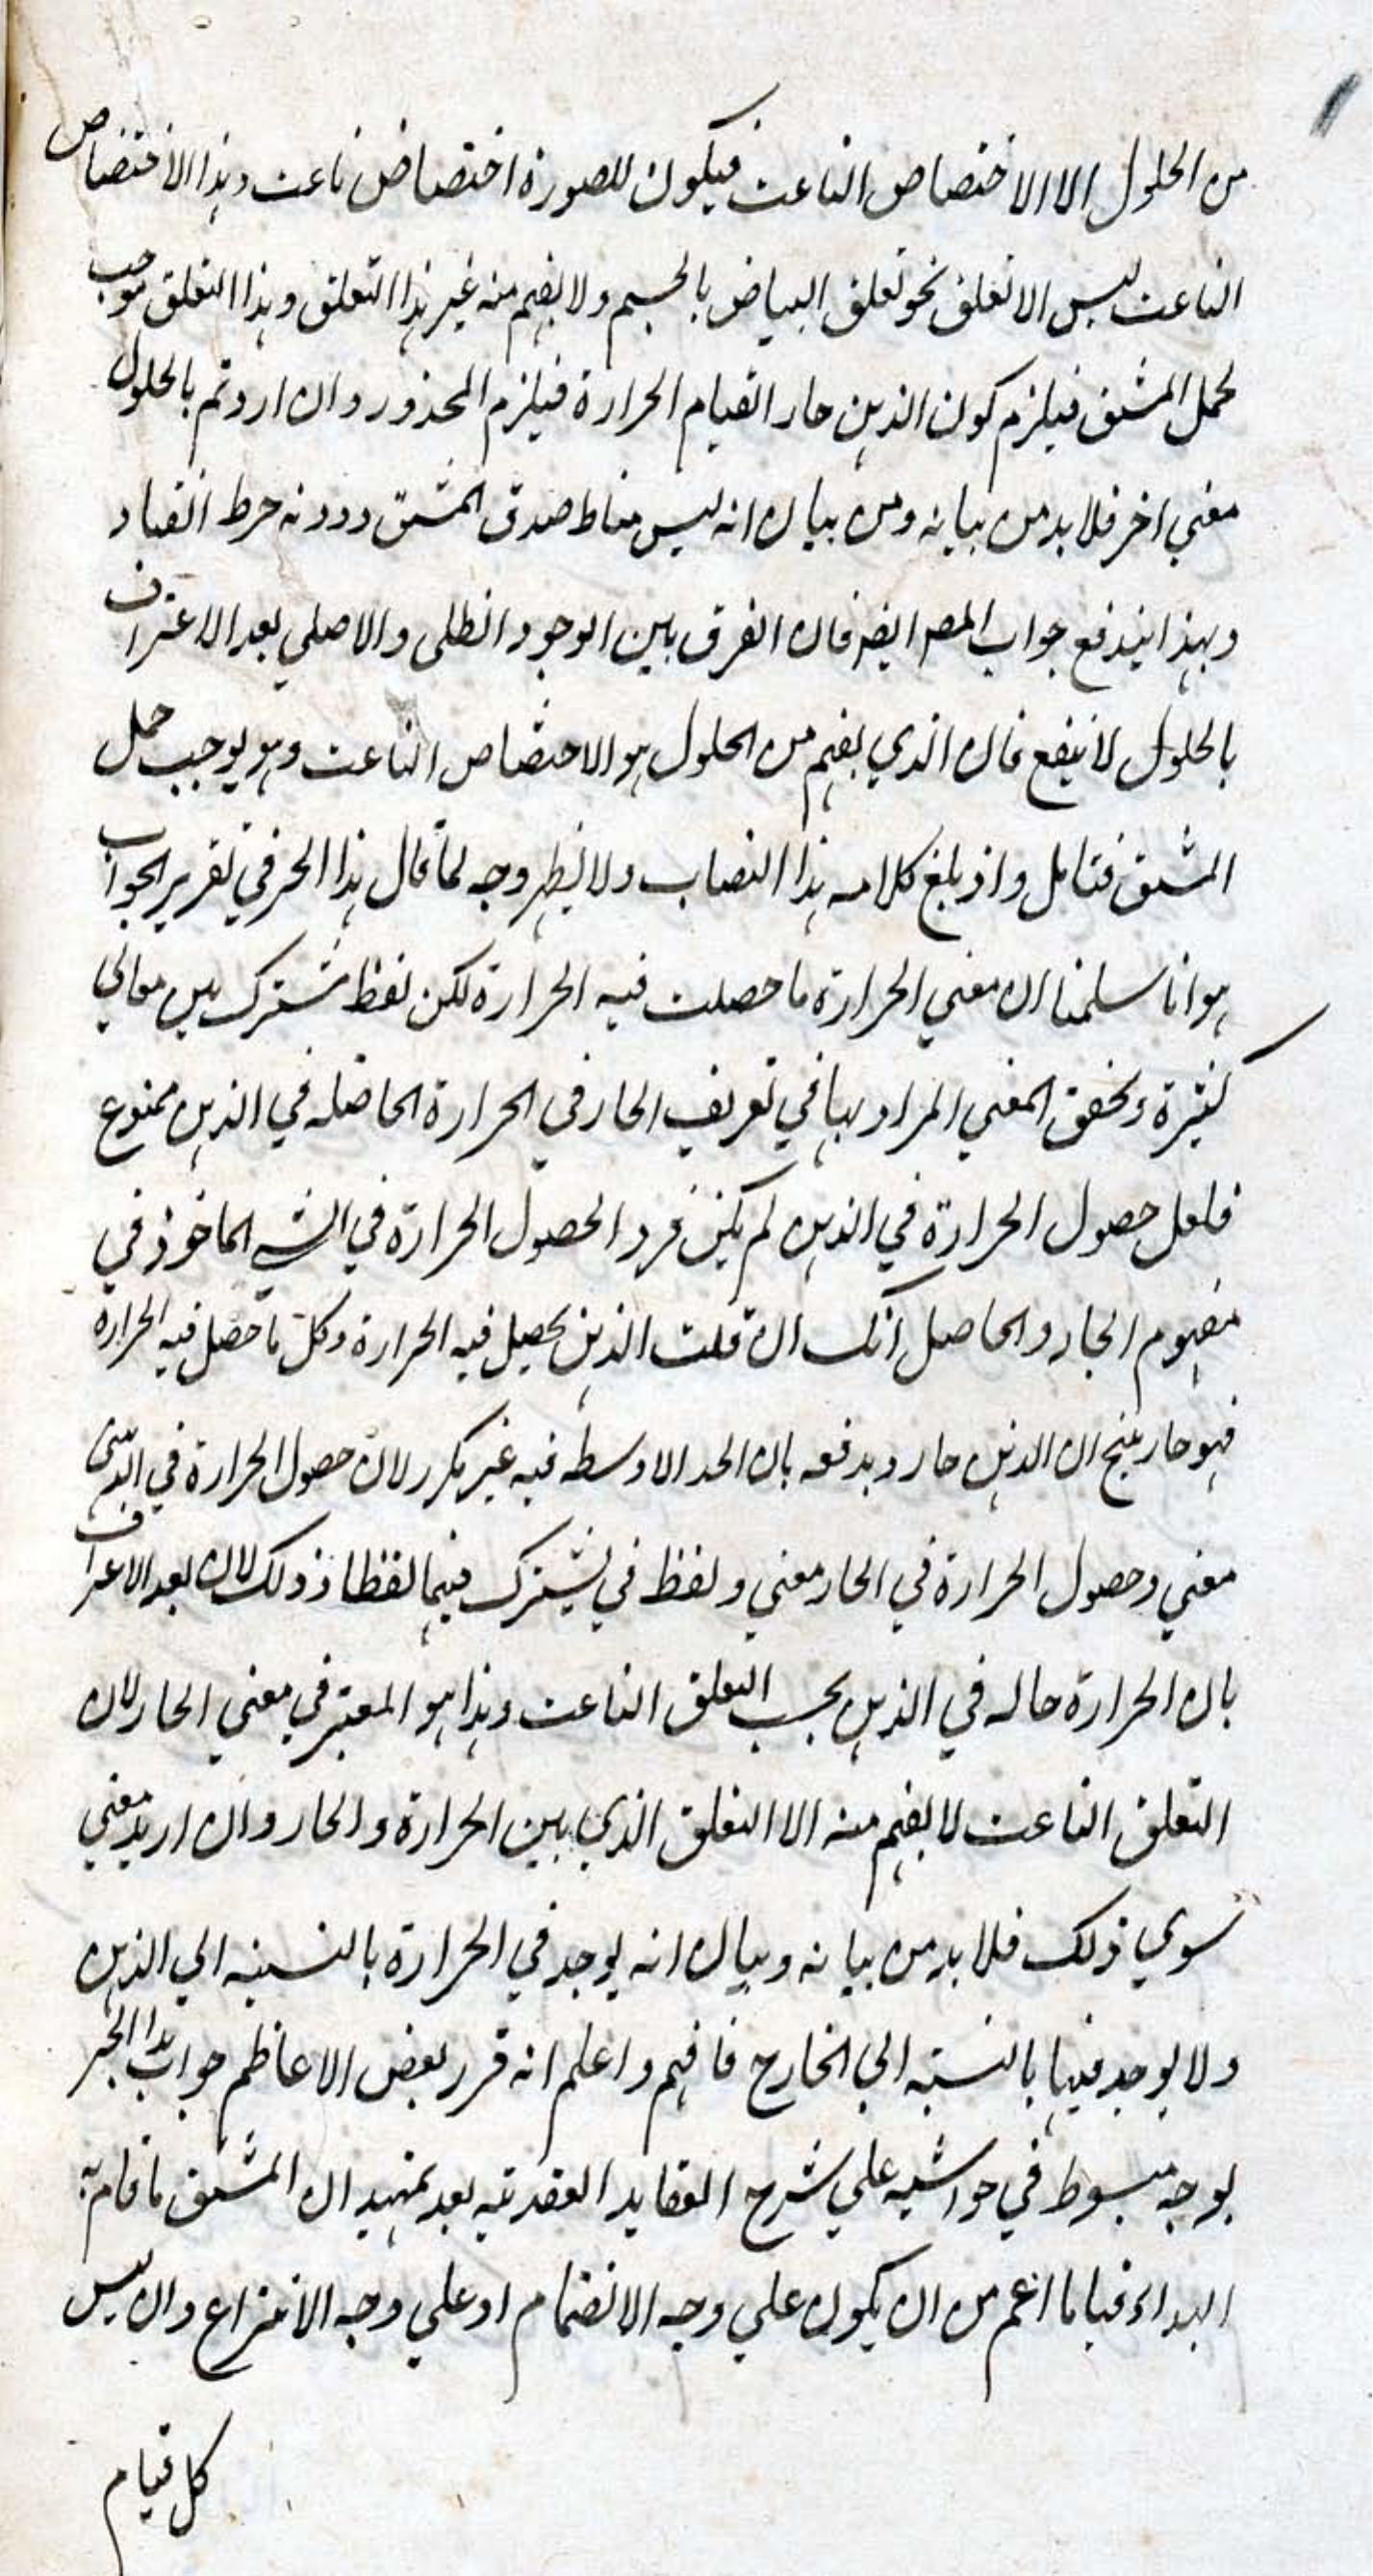 من الحلول الا الاختصاص الناعت فيكون للصورة اختصاص ناعت وهذا الاختصاص
الناعت ليس الا تعلق نحو تعلق البياض بالجسم ولا يفهم منه غير هذا التعلق وهذا التعلق موجب
لحمل المشتق فيلزم كون الذهن حارا لقيام الحرارة فيلزم المحذور وان اردتم بالحلول
معني اخر فلا بد من بيانه ومن بيان انه ليس مناط صدق المشتق ودونه خرط القتاد
وبهذا يندفع جواب المصـ ايضـ فان الفرق بين الوجود الظلى والاصلي بعد الاعتراف
بالحلول لا ينفع فان الذي يفهم من الحلول هو الاختصاص الناعت وهو يوجب حمل
المشتق فتامل واذ بلغ كلامه هذا النصاب ولا يظهر وجه لما قال هذا الحبر في تقرير الجواب
هو انا سلمنا ان معني الحرارة ما حصلت فيه الحرارة لكن لفظ مشترك بين معاني
كثيرة وتحقق المعني المراد بها في تعريف الحار في الحرارة الحاصله في الذهن ممنوع
فلعل حصول الحرارة في الذهن لم يكن فردا لحصول الحرارة في الشي الماخوذ في
مفهوم الحار والحاصل انك ان قلت الذهن يحصل فيه الحرارة وكل ما حصل فيه الحرارة
فهو حار ينتج ان الذهن حار ويدفعه بان الحد الاوسط فيه غير مكرر لان حصول الحرارة في الذهن
معني وحصول الحرارة في الحار معني ولفظ في يشترك فيهما لفظا وذلك لان بعد الاعتراف
بان الحرارة حاله في الذهن يجب التعلق الناعت وهذا هو المعتبر في معني الحار لان
التعلق الناعت لا يفهم منه الا التعلق الذي بين الحرارة والحار وان اريد معني
سوي ذلك فلا بد من بيانه وبيان انه يوجد في الحرارة بالنسبه الي الذهن
ولا يوجد فيها بالنسبته الي الخارج فافهم واعلم انه قرر بعض الاعاظم جواب هذا الحبر
بوجه مبسوط في حواشيه علي شرح العقايد العضديه بعد تمهيد ان المشتق ما قام به
المبداء قياما اعم من ان يكون علي وجه الانضمام او علي وجه الانتزاع وان ليس
كل قيام